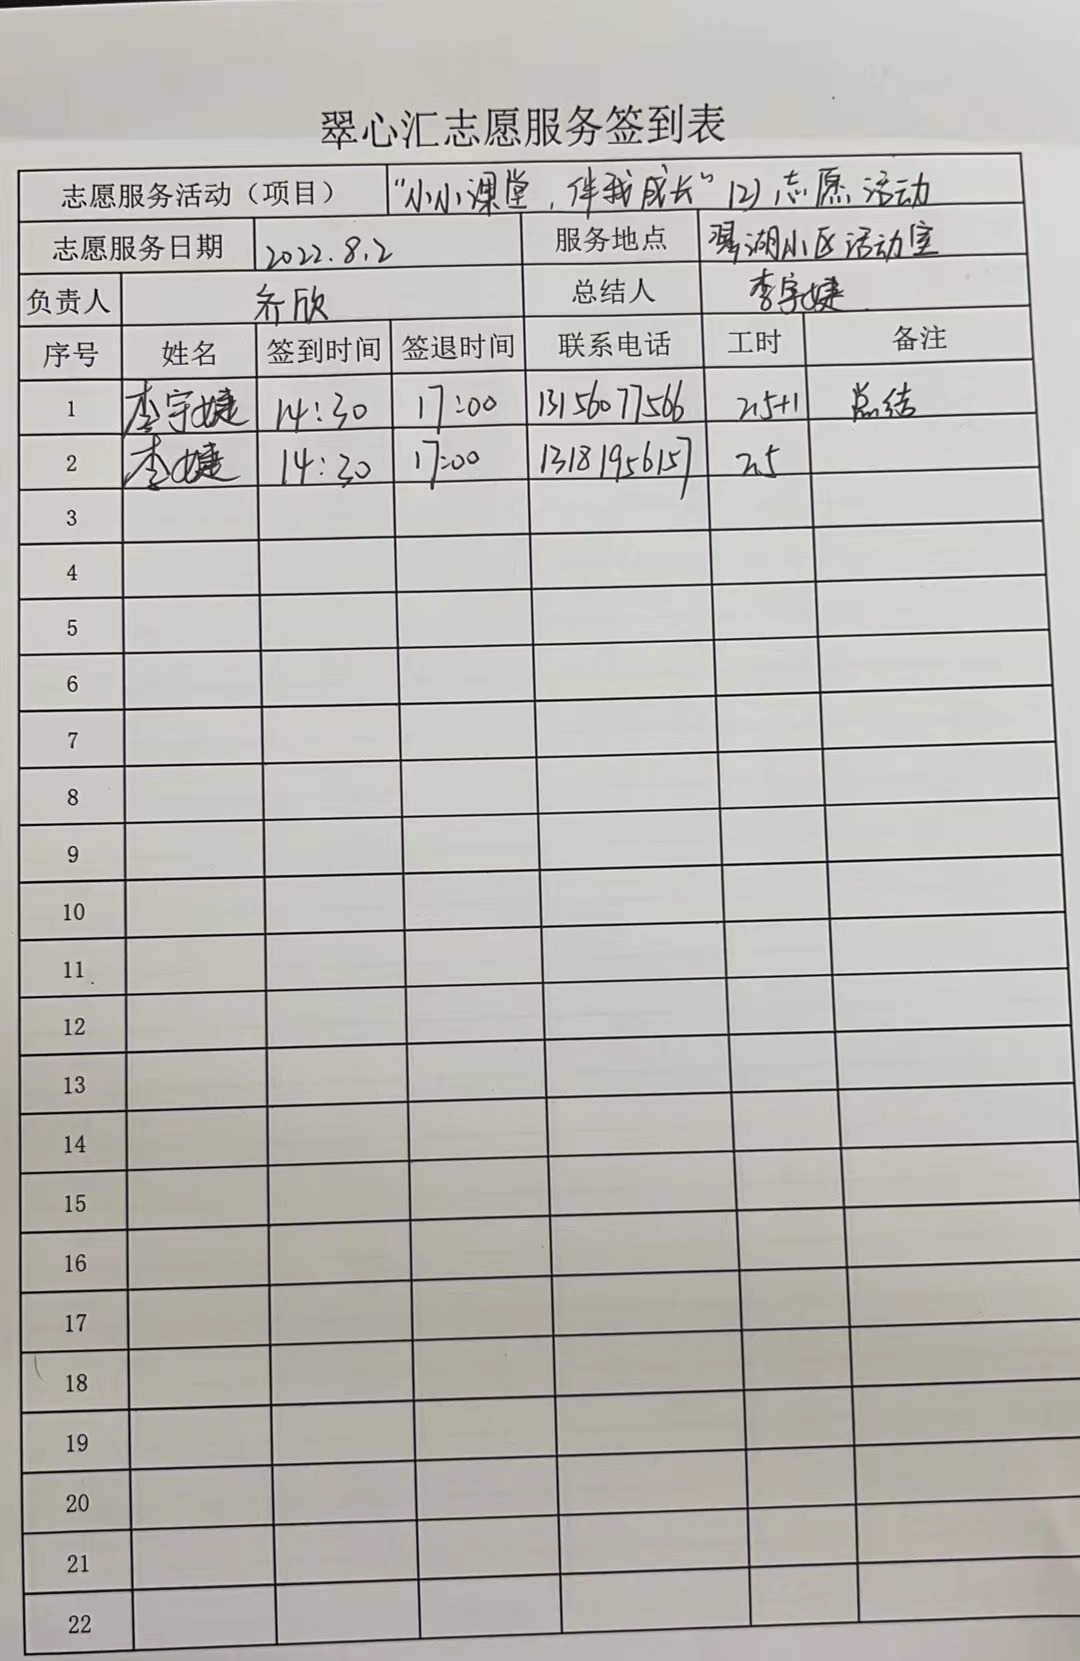 翠心汇志愿服务签到表
志愿服务活动（项目） “小小课堂，伴我成长”(2)志愿活动
志愿服务日期 2022.8.2 服务地点 翠湖小区活动室
负责人 乔欣 总结人 李宇婕
序号 姓名 签到时间 签退时间 联系电话 工时 备注
1 李宇婕 14:30 17:00 13156077566 2.5+1 总结
2 李婕 14:30 17:00 13181956157 2.5
3
4
5
6
7
8
9
10
11
12
13
14
15
16
17
18
19
20
21
22